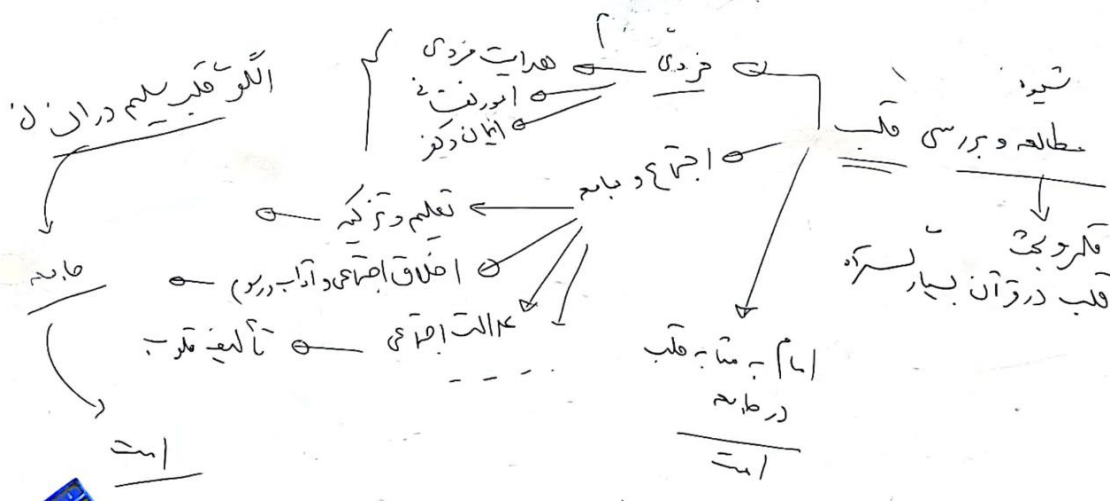 شیوه
مطالعه و بررسی قلب
قلب در قرآن بسیار گسترده
فردی
هدایت فردی
امور نفسانی
ایمان و کفر
اجتماع و جامعه
تعلیم و تزکیه
اخلاق اجتماعی و آداب و رسوم
عدالت اجتماعی
تألیف قلوب
امام به مثابه قلب
در جامعه
امت
الگوی قلب سلیم در انسان
جامعه
امت